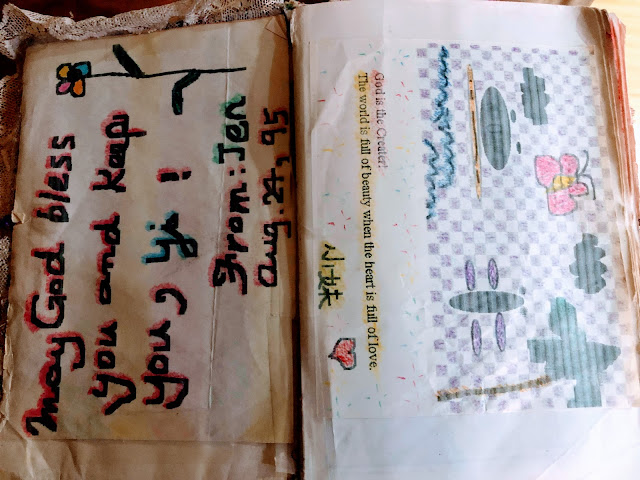 may God bless
you and Keep
you, !
From: Jen
Aug. 24, 95
God is the Creater!
The world is full of beauty when the heart is full of love.
小妹